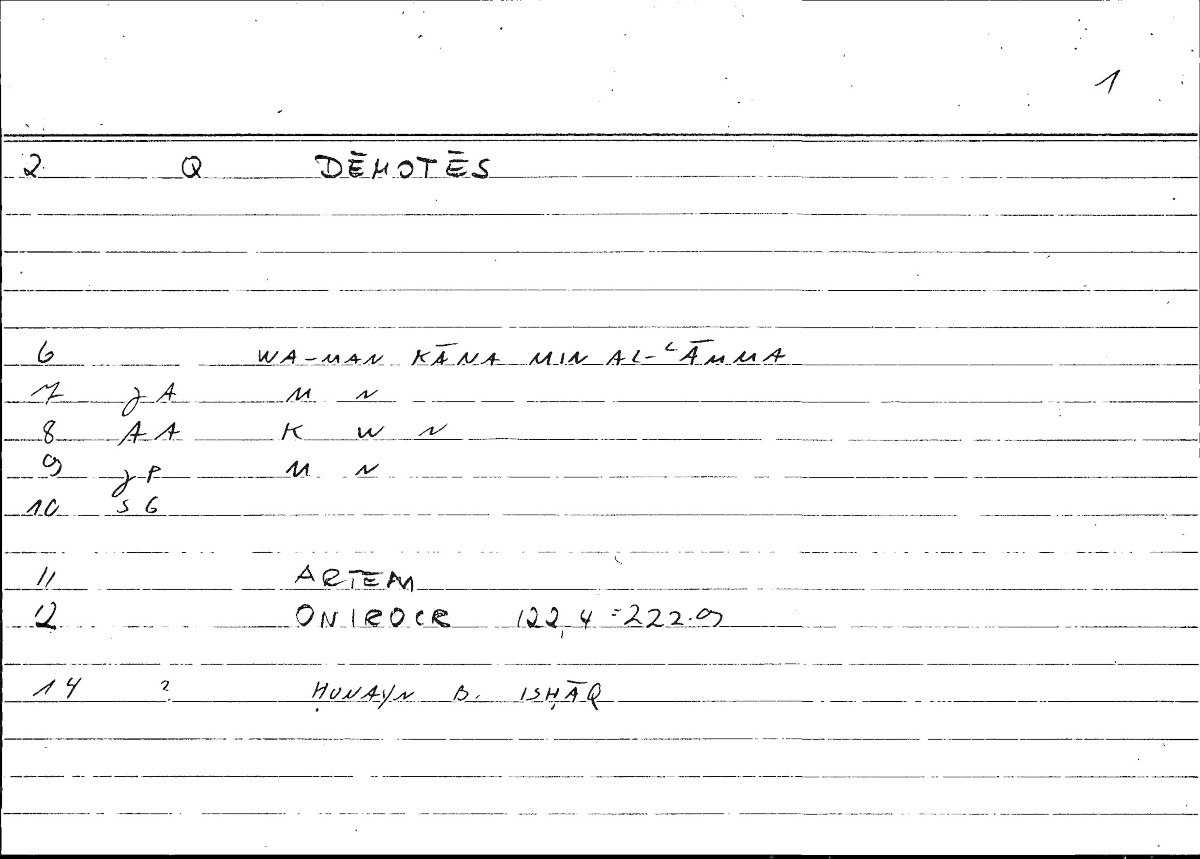 1
2 Q DĒMOTĒS
6 WA-MAN KĀNA MIN AL-ʿĀMMA
7 JA M N
8 AA K W N
9 JP M N
10 SG
11 ARTEM
12 ONIROCR 122,4=222.9
14 ? ḤUNAYN B. ISḤĀQ